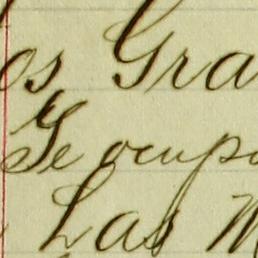 os Gra
Se ocupo
Las M